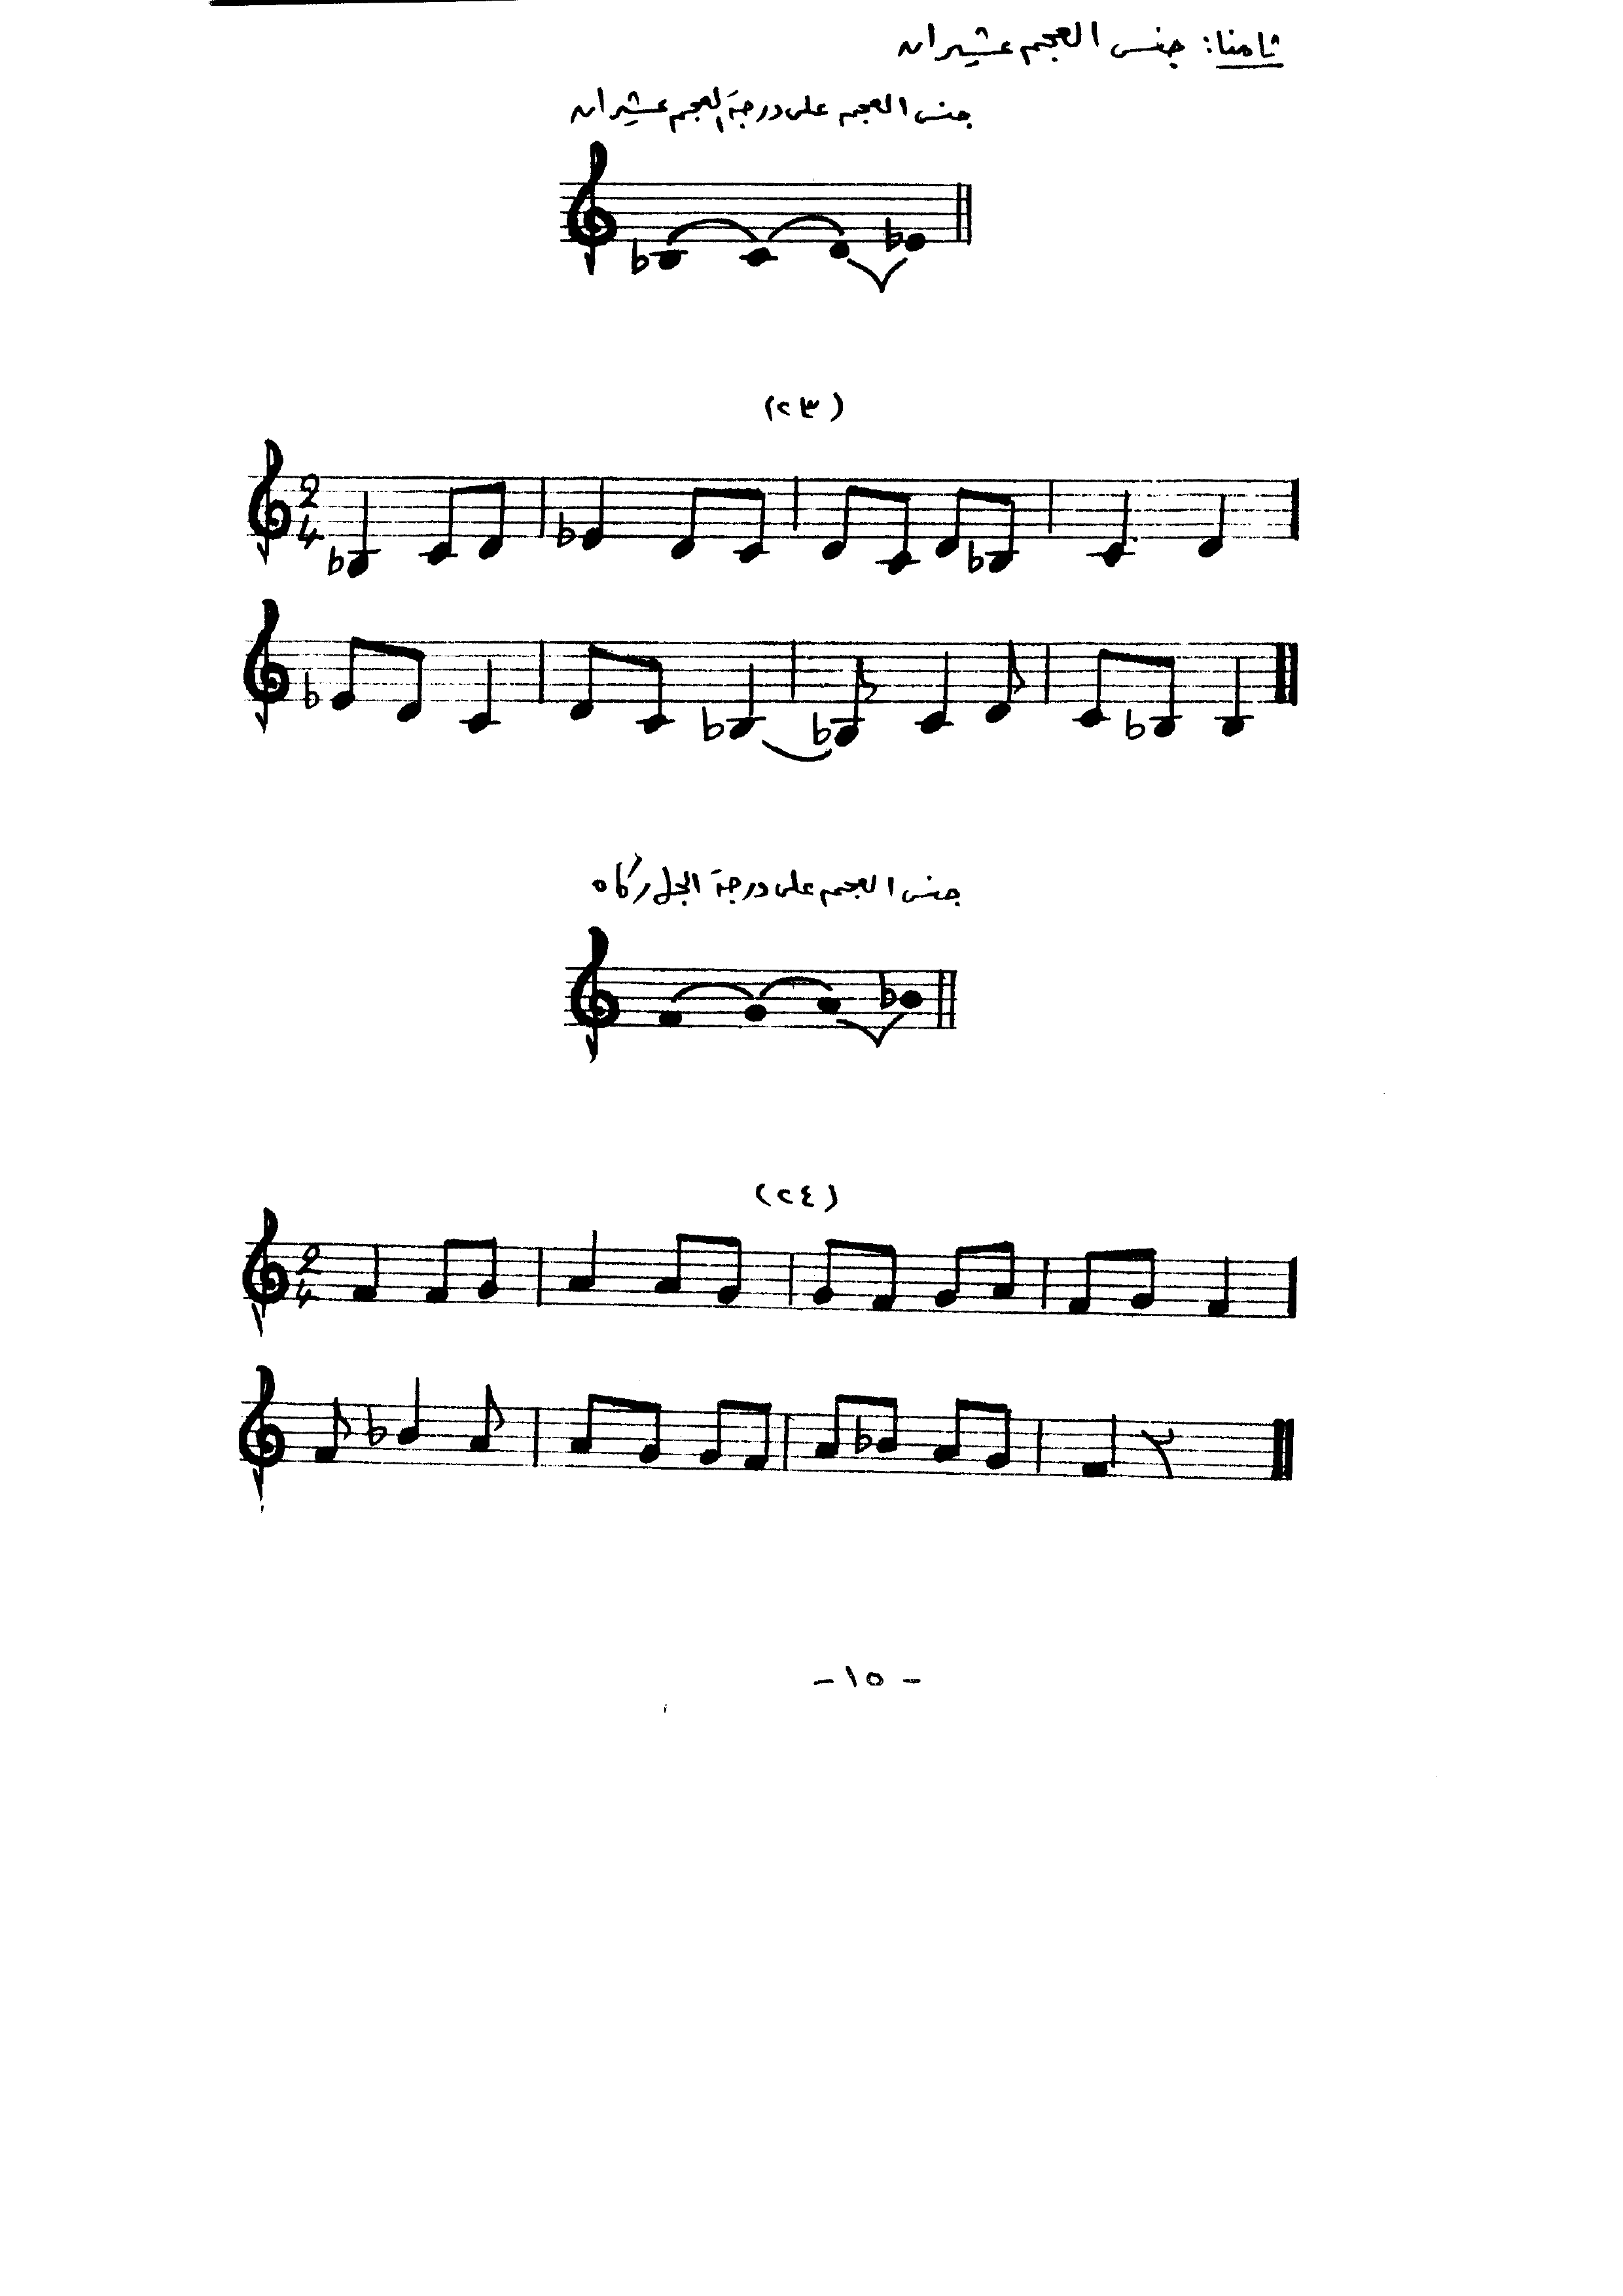 ثامنا: جنس العجم عشيران
جنس العجم على درجة العجم عشيران
(٢٣)
2
4
جنس العجم على درجة الجهاركاه
(٢٤)
2
4
- ١٥ -